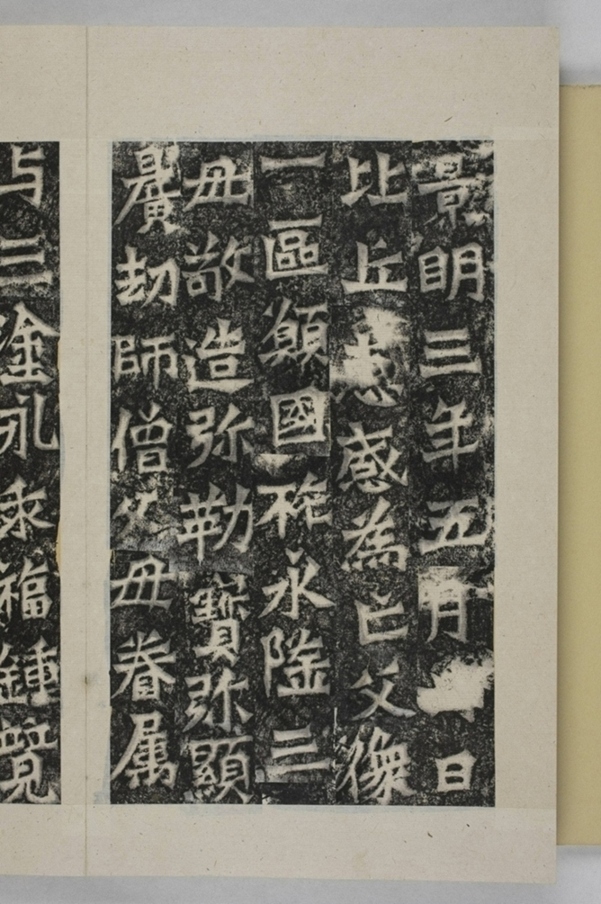 景明三年五月日
比丘感為亡父像
一區願國祚永隆三
母敬造弥勒寶弥顯
曠劫師僧父母眷属
与三塗永乖福鍾竟